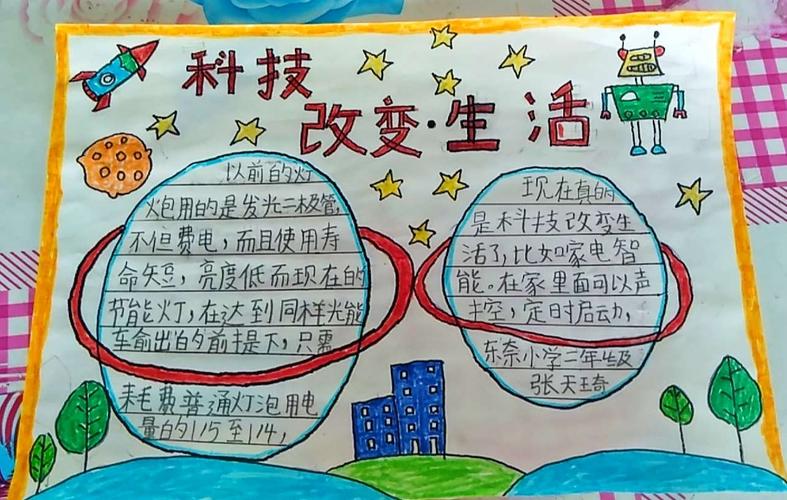 科技
改变·生活
以前的灯
炮用的是发光二极管,
不但费电,而且使用寿
命短,亮度低而现在的
节能灯,在达到同样光能
车俞出的前提下,只需
耗费普通灯泡用电
量的1/5至1/4,
现在真的
是科技改变生
活了,比如家电智
能。在家里面可以声
控,定时启动,
东奈小学二年级
张天琦